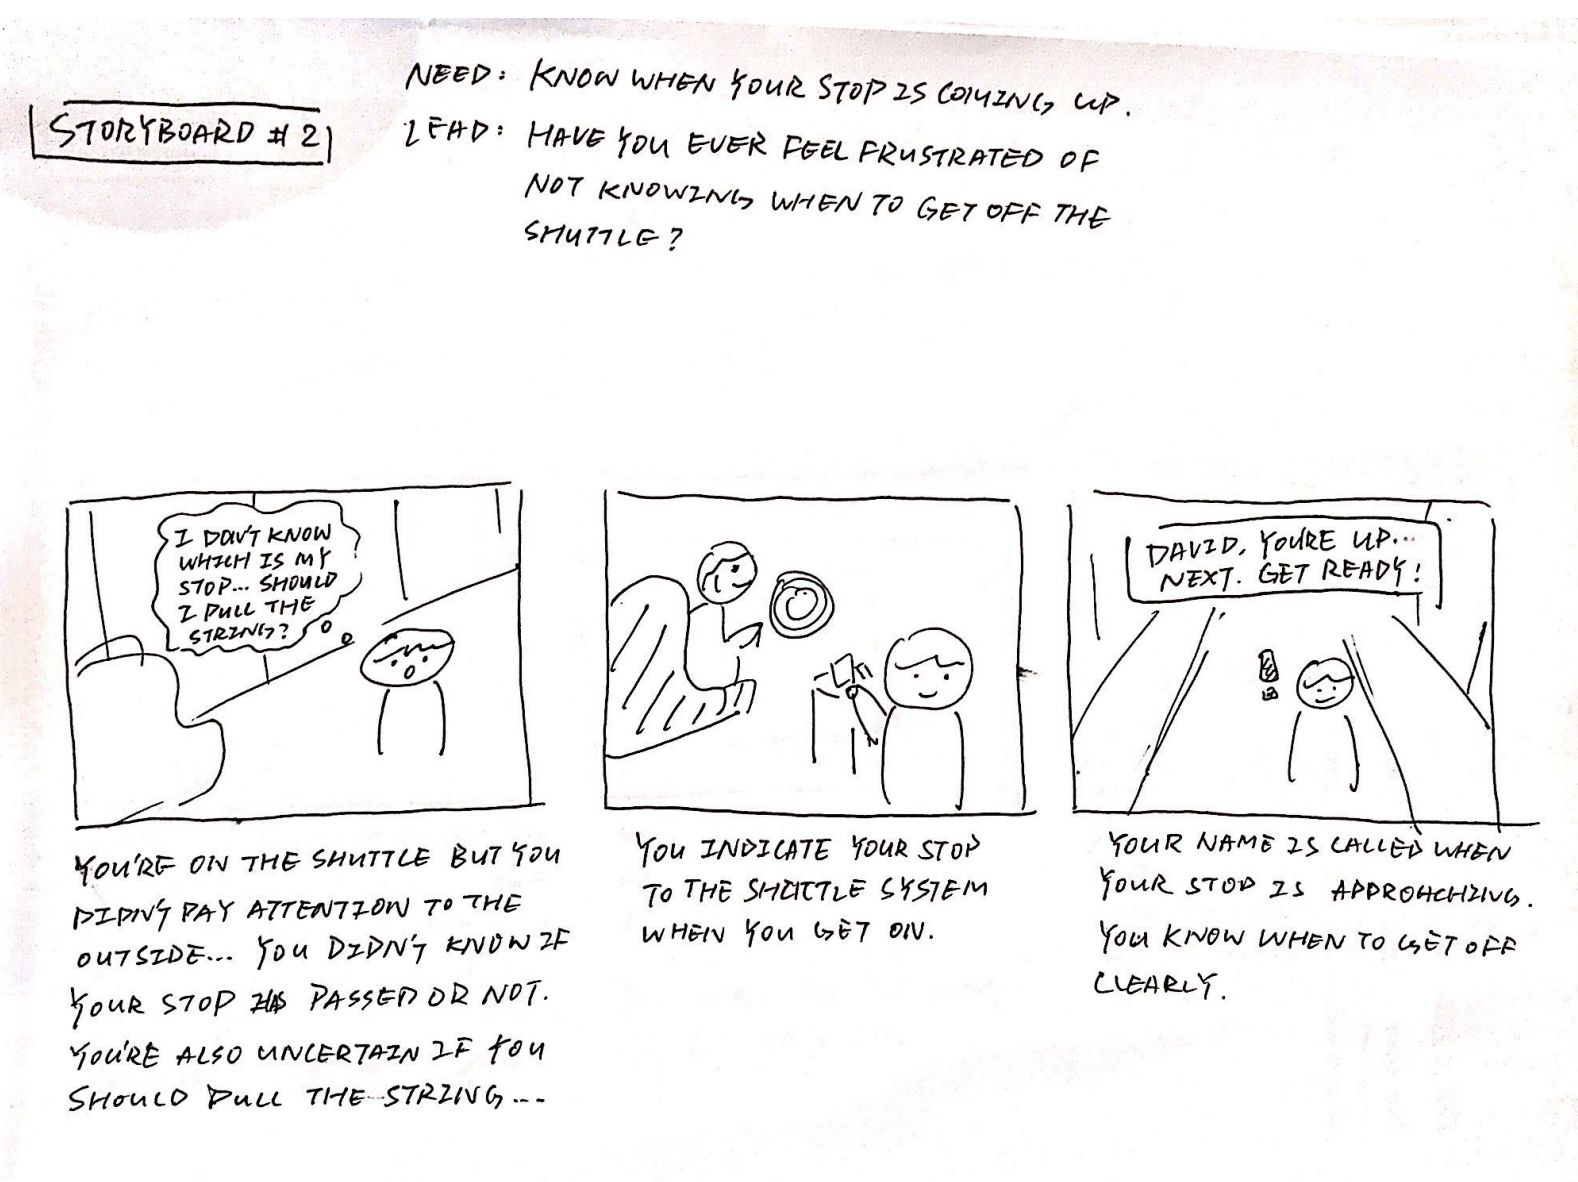 STORYBOARD # 2
NEED: KNOW WHEN YOUR STOP IS COMING UP.
LEAD: HAVE YOU EVER FEEL FRUSTRATED OF
NOT KNOWING WHEN TO GET OFF THE
SHUTTLE?
I DON'T KNOW
WHICH IS MY
STOP... SHOULD
I PULL THE
STRING?
YOU'RE ON THE SHUTTLE BUT YOU
DIDN'T PAY ATTENTION TO THE
OUTSIDE... YOU DIDN'T KNOW IF
YOUR STOP HAS PASSED OR NOT.
YOU'RE ALSO UNCERTAIN IF YOU
SHOULD PULL THE STRING...
YOU INDICATE YOUR STOP
TO THE SHUTTLE SYSTEM
WHEN YOU GET ON.
DAVID, YOU'RE UP...
NEXT. GET READY!
YOUR NAME IS CALLED WHEN
YOUR STOP IS APPROACHING.
YOU KNOW WHEN TO GET OFF
CLEARLY.